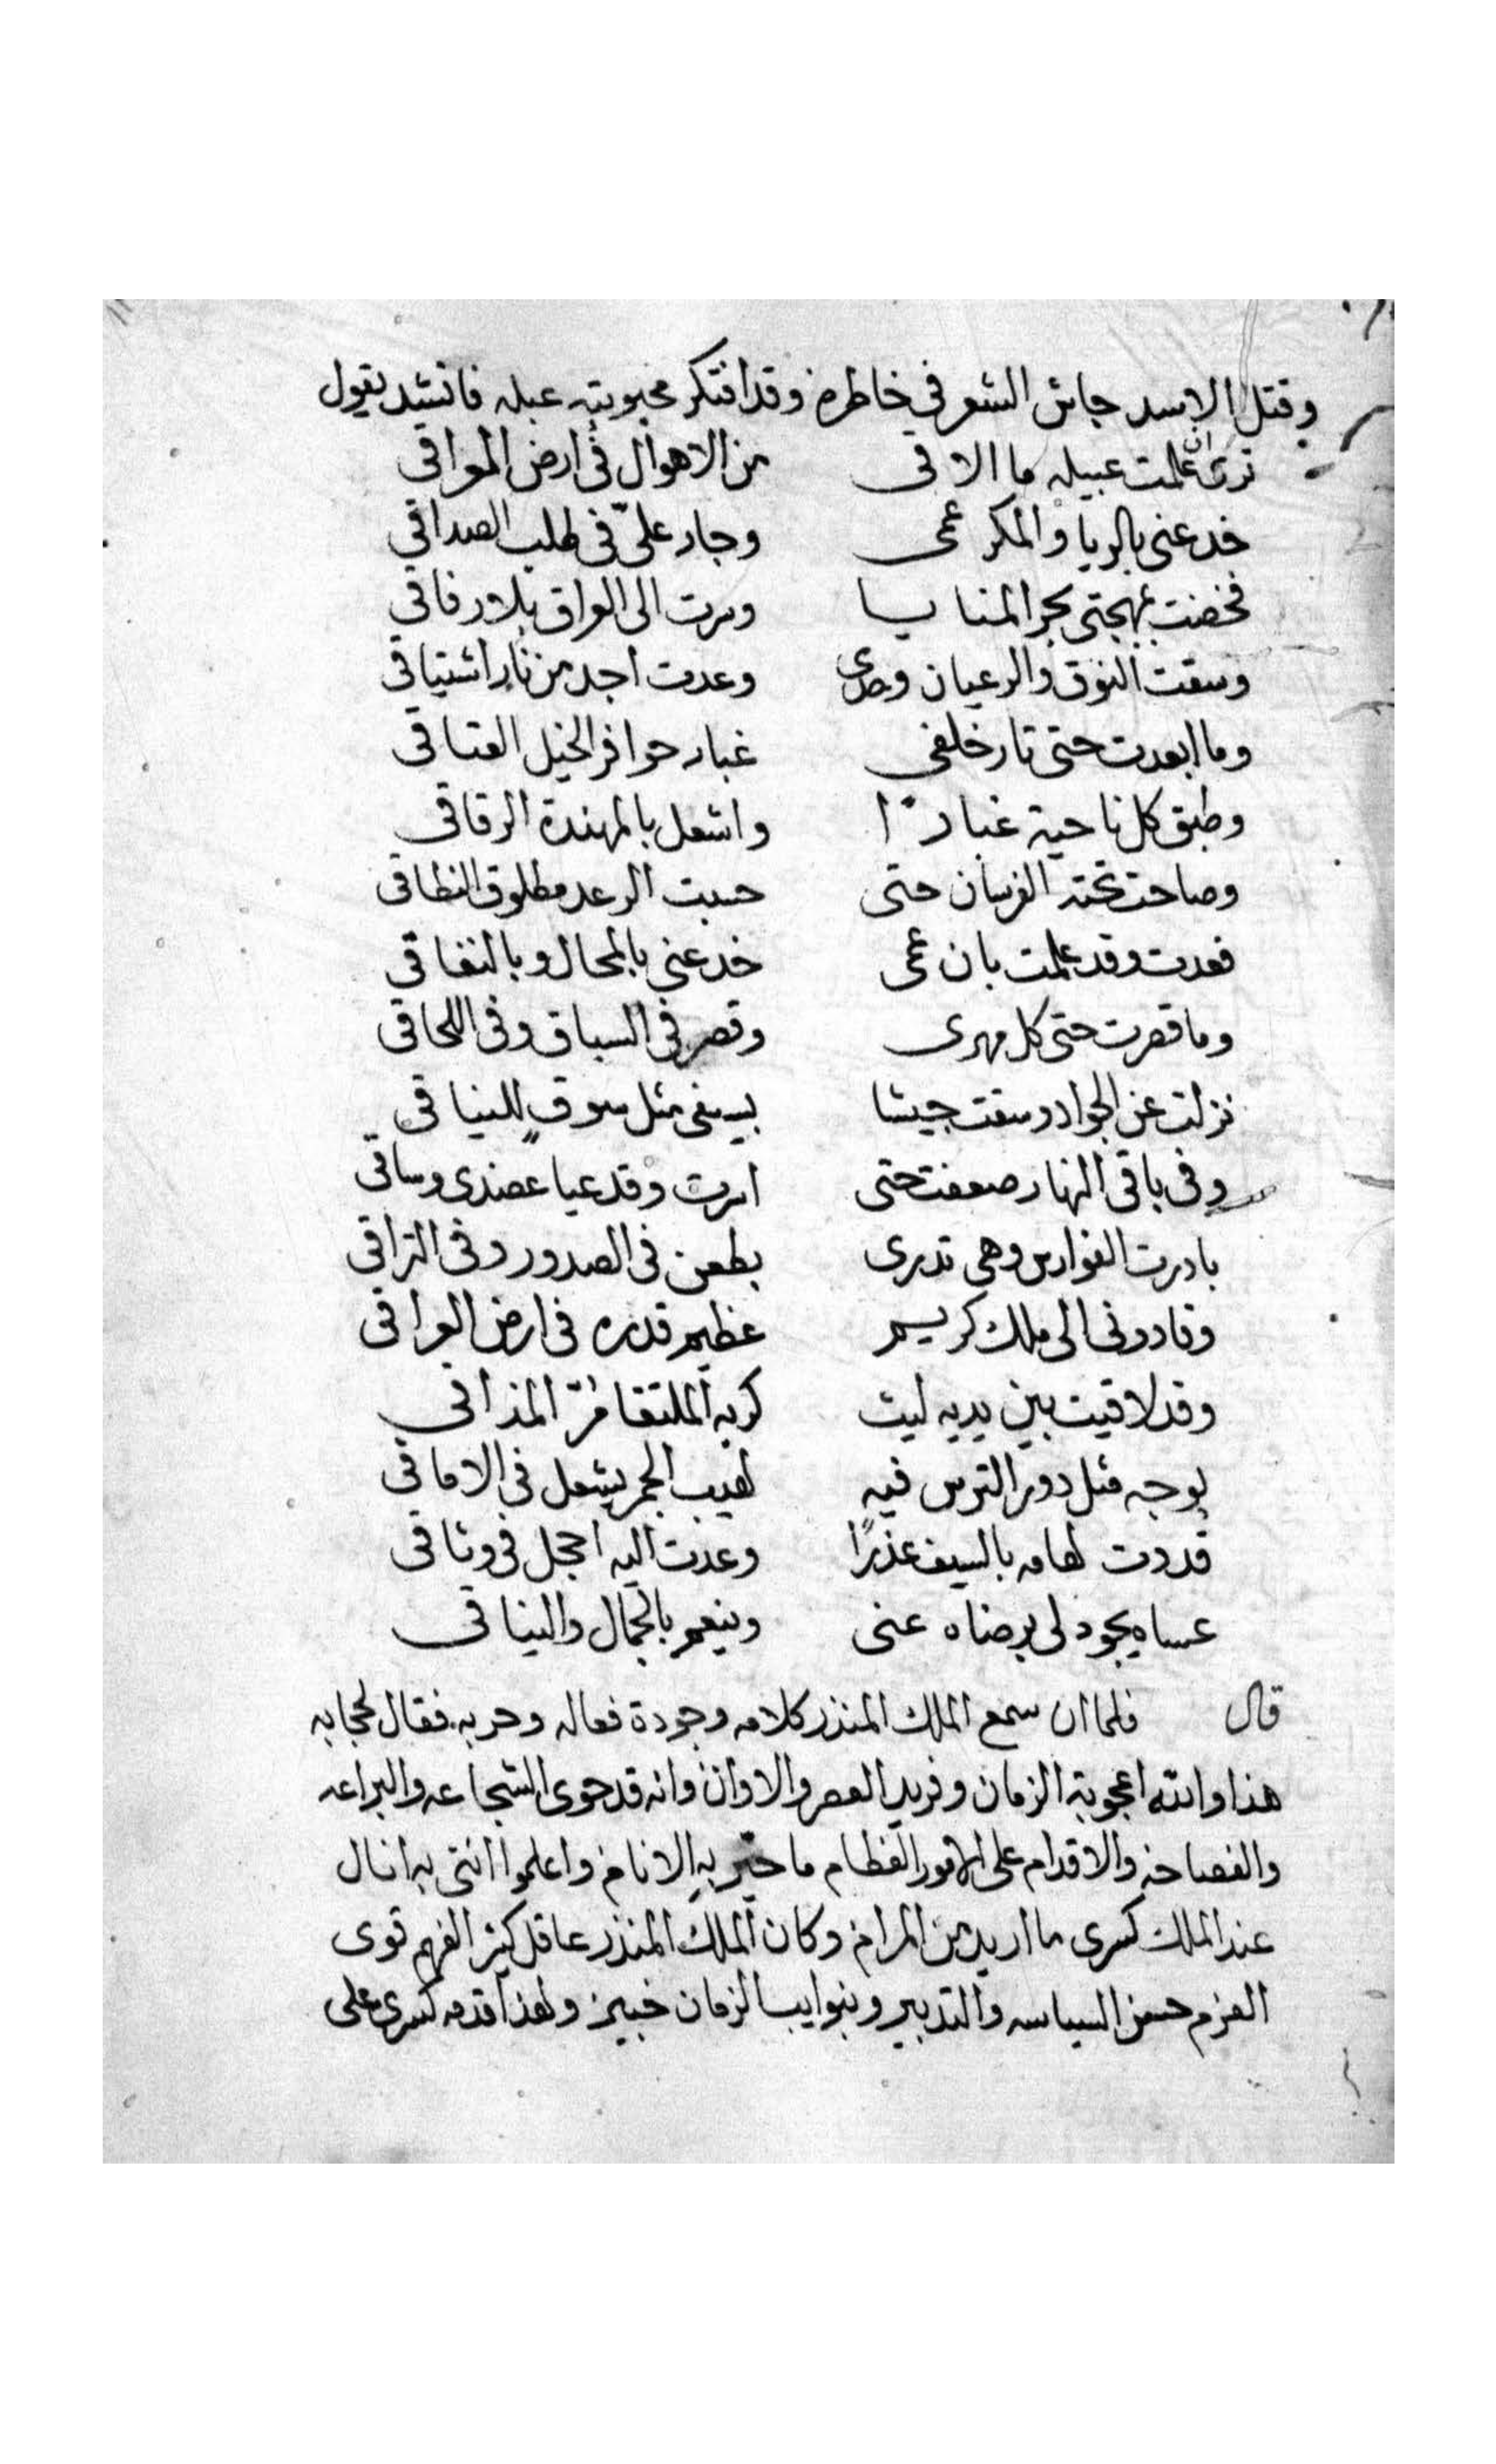 وقتل الاسد جاش الشعر في خاطره وقد افتكر محبوبته عبله فانشد يقول
ترى ان علمت عبيله ما الاقى من الاهوال فى ارض العراقى
خدعنى بالريا والمكر عمى وجار علىّ فى طلب الصداقى
فخضت بمهجتى بحر المنايا وسرت الى العراق بلا رفاقى
وسقت النوق والرعيان وحدى وعدت اجد من نار اشتياقى
وما ابعدت حتى تار خلفى غبار حوافر الخيل العتاقى
وطبق كل ناحية غبارًا واشعل بالمهندة الرقاقى
وصاحت تحته الفرسان حتى حسبت الرعد مطلوق النطاقى
فعدت وقد علمت بان عمى خدعنى بالمحال وبالنفاقى
وما قصرت حتى كل مهرى وقصر فى السباق وفى اللحاقى
نزلت عن الجواد وسقت جيشا بسيفى مثل سوقٍ للنياقى
وفى باقى النهار ضعفت حتى اسرت وقد عيا عضدى وساقى
بادرت الفوارس وهى تدرى بطعن فى الصدور وفى التراقى
وقادونى الى ملك كريم عظيم قدره فى ارض العراقى
وقد لاقيت بين يديه ليث كريه الملتقا مُرّ المذاقى
بوجه مثل دور الترس فيه لهيب الجمر يشعل فى الاماقى
قددت لهامه بالسيف عذرًا وعدت اليه احجل فى وثاقى
عساه يجود لى برضاه عنى وينعم بالجمال والنياقى
قال فلما ان سمع الملك المنذر كلامه وجودة فعاله وحربه فقال لحجابه
هذا والله اعجوبة الزمان وفريد العصر والاوان وانه قد حوى الشجاعه والبراعه
والفصاحه والاقدام على الامور العظام ما حيّر به الانام واعلموا اننى به انال
عند الملك كسرى ما اريد من المرام وكان الملك المنذر عاقل كثير الفهم قوى
العزم حسن السياسه والتدبير وبنوايب الزمان خبير ولهذا قدمه كسرى على